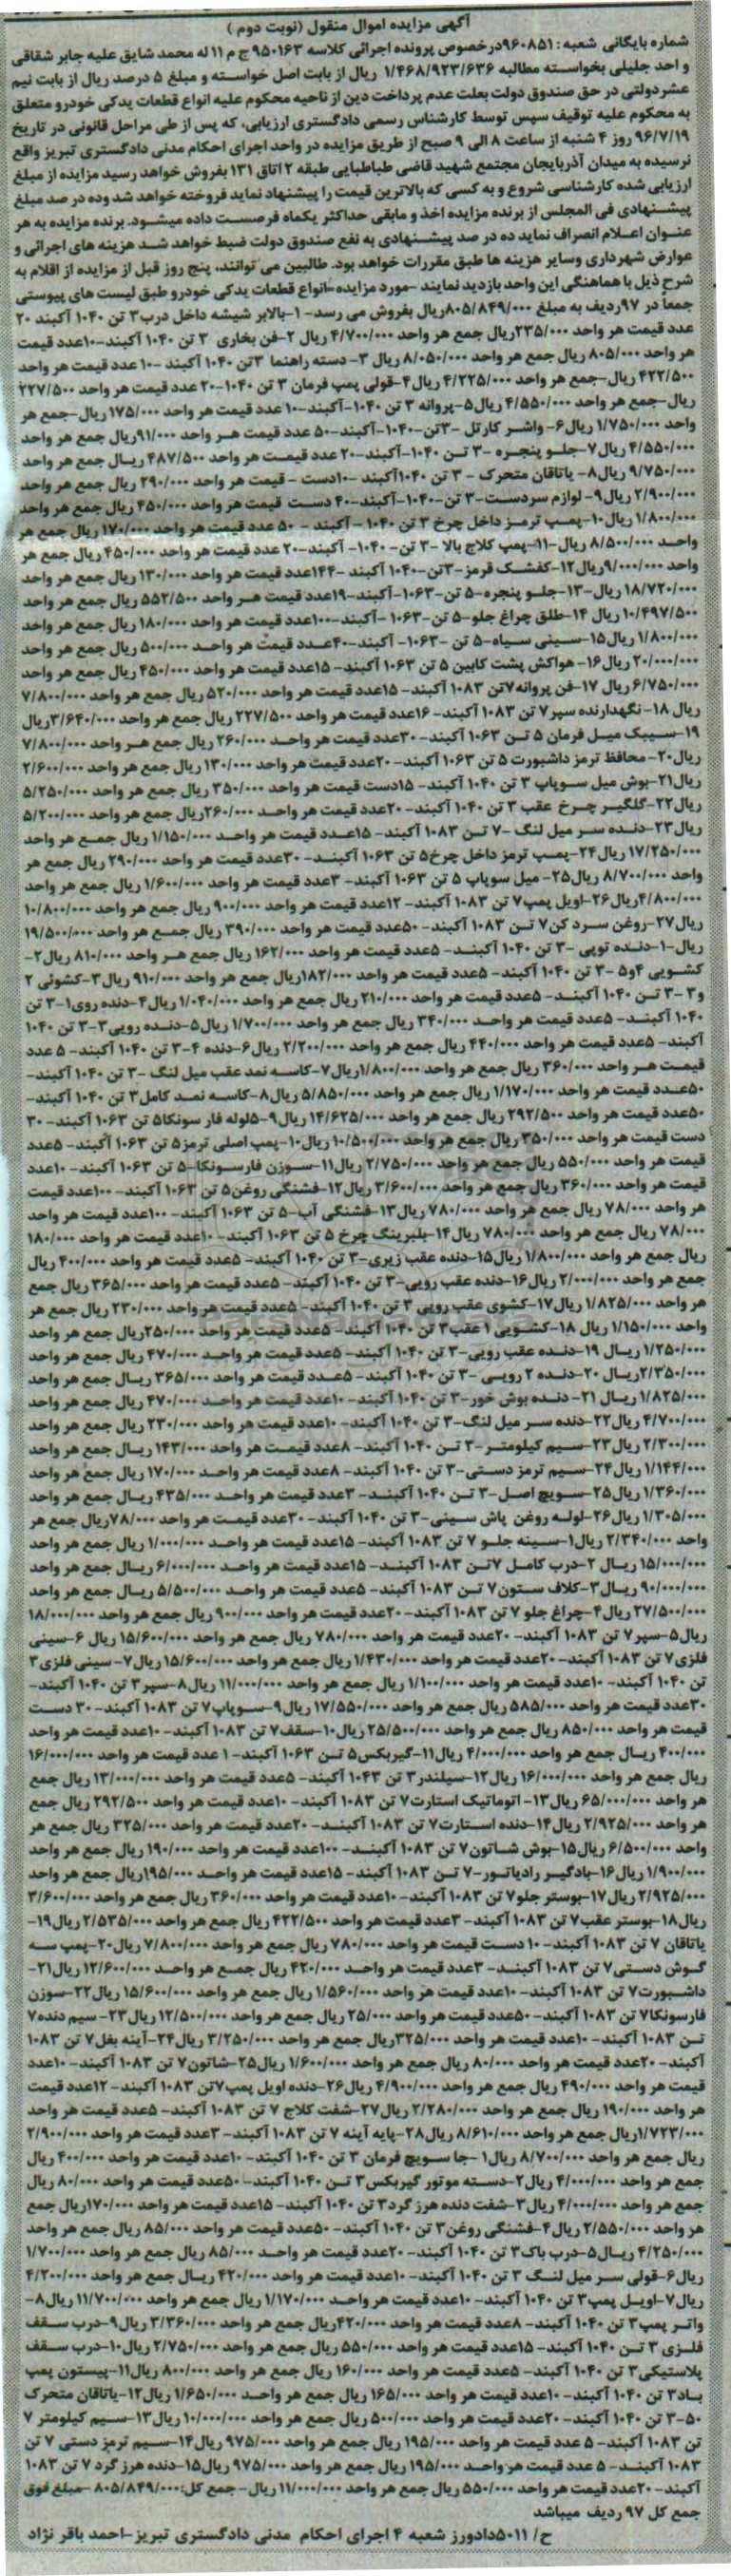 آگهی مزایده اموال منقول (نوبت دوم)
شماره بایگانی شعبه: ۹۶۰۸۵۱درخصوص پرونده اجرائی کلاسه ۹۵۰۱۶۳ ج م ۱۱ له محمد شایق علیه جابر شقاقی
و احد جلیلی بخواسته مطالبه ۱/۴۶۸/۹۲۳/۶۳۶ ریال از بابت اصل خواسته و مبلغ ۵ درصد ریال از بابت نیم
عشردولتی در حق صندوق دولت بعلت عدم پرداخت دین از ناحیه محکوم علیه انواع قطعات یدکی خودرو متعلق
به محکوم علیه توقیف سپس توسط کارشناس رسمی دادگستری ارزیابی، که پس از طی مراحل قانونی در تاریخ
۹۶/۷/۱۹ روز ۴ شنبه از ساعت ۸ الی ۹ صبح از طریق مزایده در واحد اجرای احکام مدنی دادگستری تبریز واقع
نرسیده به میدان آذربایجان مجتمع شهید قاضی طباطبایی طبقه ۲ اتاق ۱۳۱ بفروش خواهد رسید مزایده از مبلغ
ارزیابی شده کارشناسی شروع و به کسی که بالاترین قیمت را پیشنهاد نماید فروخته خواهد شد وده در صد مبلغ
پیشنهادی فی المجلس از برنده مزایده اخذ و مابقی حداکثر یکماه فرصت داده میشود. برنده مزایده به هر
عنوان اعلام انصراف نماید ده در صد پیشنهادی به نفع صندوق دولت ضبط خواهد شد هزینه های اجرائی و
عوارض شهرداری وسایر هزینه ها طبق مقررات خواهد بود. طالبین می توانند، پنج روز قبل از مزایده از اقلام به
شرح ذیل با هماهنگی این واحد بازدید نمایند -مورد مزایده-انواع قطعات یدکی خودرو طبق لیست های پیوستی
جمعاً در ۹۷ردیف به مبلغ ۸۰۵/۸۴۹/۰۰۰ریال بفروش می رسد- ۱-بالابر شیشه داخل درب۳ تن ۱۰۴۰ آکبند ۲۰
عدد قیمت هر واحد ۲۳۵/۰۰۰ریال جمع هر واحد ۴/۷۰۰/۰۰۰ ریال ۲-فن بخاری ۳ تن ۱۰۴۰ آکبند-۱۰عدد قیمت
هر واحد ۸۰۵/۰۰۰ ریال جمع هر واحد ۸/۰۵۰/۰۰۰ ریال ۳- دسته راهنما ۳تن ۱۰۴۰ آکبند -۱۰ عدد قیمت هر واحد
۴۲۲/۵۰۰ ریال-جمع هر واحد ۴/۲۲۵/۰۰۰ ریال۴-قولی پمپ فرمان ۳ تن ۱۰۴۰-۲۰ عدد قیمت هر واحد ۲۲۷/۵۰۰
ریال-جمع هر واحد ۴/۵۵۰/۰۰۰ ریال۵-پروانه ۳ تن ۱۰۴۰-آکبند-۱۰ عدد قیمت هر واحد ۱۷۵/۰۰۰ ریال-جمع هر
واحد ۱/۷۵۰/۰۰۰ ریال۶-واشر کارتل -۳تن-۱۰۴۰-آکبند-۵۰ عدد قیمت هر واحد ۹۱/۰۰۰ریال جمع هر واحد
۴/۵۵۰/۰۰۰ ریال۷-جلو پنجره -۳ تن ۱۰۴۰-آکبند-۲۰ عدد قیمت هر واحد ۴۸۷/۵۰۰ ریال جمع هر واحد
۹/۷۵۰/۰۰۰ ریال۸- یاتاقان متحرک - ۳ تن ۱۰۴۰آکبند -۱۰دست - قیمت هر واحد ۲۹۰/۰۰۰ ریال جمع هر واحد
۲/۹۰۰/۰۰۰ ریال۹- لوازم سردست-۳ تن-۱۰۴۰-آکبند-۴۰ دست قیمت هر واحد ۴۵۰/۰۰۰ ریال جمع هر واحد
۱/۸۰۰/۰۰۰ ریال۱۰-پمپ ترمز داخل چرخ ۳ تن ۱۰۴۰ - آکبند - ۵۰ عدد قیمت هر واحد ۱۷۰/۰۰۰ ریال جمع هر
واحد ۸/۵۰۰/۰۰۰ ریال-۱۱-پمپ کلاج بالا -۳ تن- ۱۰۴۰- آکبند-۲۰ عدد قیمت هر واحد ۴۵۰/۰۰۰ ریال جمع هر
واحد ۹/۰۰۰/۰۰۰ریال۱۲-کفشک قرمز-۳تن-۱۰۴۰ آکبند -۱۴۴عدد قیمت هر واحد ۱۳۰/۰۰۰ ریال جمع هر واحد
۱۸/۷۲۰/۰۰۰ ریال-۱۳-جلو پنجره-۵ تن-۱۰۶۳-آکبند-۱۹عدد قیمت هر واحد ۵۵۲/۵۰۰ ریال جمع هر واحد
۱۰/۴۹۷/۵۰۰ ریال ۱۴-طلق چراغ جلو-۵ تن-۱۰۶۳ -آکبند-۱۰۰عدد قیمت هر واحد ۱۸۰/۰۰۰ ریال جمع هر واحد
۱/۸۰۰/۰۰۰ ریال۱۵-سینی سیاه-۵ تن -۱۰۶۳- آکبند-۴۰عدد قیمت هر واحد ۵۰۰/۰۰۰ ریال جمع هر واحد
۲۰/۰۰۰/۰۰۰ ریال۱۶- هواکش پشت کابین ۵ تن ۱۰۶۳ آکبند- ۱۵عدد قیمت هر واحد ۴۵۰/۰۰۰ ریال جمع هر واحد
۶/۷۵۰/۰۰۰ ریال ۱۷-فن پروانه۷تن ۱۰۸۳ آکبند- ۱۵عدد قیمت هر واحد ۵۲۰/۰۰۰ ریال جمع هر واحد ۷/۸۰۰/۰۰۰
ریال ۱۸-نگهدارنده سپر۷ تن ۱۰۸۳ آکبند- ۱۶عدد قیمت هر واحد ۲۲۷/۵۰۰ ریال جمع هر واحد ۳/۶۴۰/۰۰۰ریال
۱۹-سیبک میل فرمان ۵ تن ۱۰۶۳ آکبند- ۳۰عدد قیمت هر واحد ۲۶۰/۰۰۰ ریال جمع هر واحد ۷/۸۰۰/۰۰۰
ریال۲۰- محافظ ترمز داشبورت ۵ تن ۱۰۶۳ آکبند- ۲۰عدد قیمت هر واحد ۱۳۰/۰۰۰ ریال جمع هر واحد ۲/۶۰۰/۰۰۰
ریال۲۱-بوش میل سوپاپ ۳ تن ۱۰۴۰ آکبند- ۱۵دست قیمت هر واحد ۳۵۰/۰۰۰ ریال جمع هر واحد ۵/۲۵۰/۰۰۰
ریال۲۲-گلگیر چرخ عقب ۳ تن ۱۰۴۰ آکبند- ۲۰عدد قیمت هر واحد ۲۶۰/۰۰۰ریال جمع هر واحد ۵/۲۰۰/۰۰۰
ریال۲۳-دنده سر میل لنگ -۷ تن ۱۰۸۳ آکبند- ۱۵عدد قیمت هر واحد ۱/۱۵۰/۰۰۰ ریال جمع هر واحد
۱۷/۲۵۰/۰۰۰ ریال۲۴-پمپ ترمز داخل چرخ۵ تن ۱۰۶۳ آکبند- ۳۰عدد قیمت هر واحد ۲۹۰/۰۰۰ ریال جمع هر
واحد ۸/۷۰۰/۰۰۰ ریال۲۵- میل سوپاپ ۵ تن ۱۰۶۳ آکبند- ۳عدد قیمت هر واحد ۱/۶۰۰/۰۰۰ ریال جمع هر واحد
۴/۸۰۰/۰۰۰ریال۲۶-اویل پمپ۷ تن ۱۰۸۳ آکبند- ۱۲عدد قیمت هر واحد ۹۰۰/۰۰۰ ریال جمع هر واحد ۱۰/۸۰۰/۰۰۰
ریال۲۷-روغن سرد کن۷ تن ۱۰۸۳ آکبند- ۵۰عدد قیمت هر واحد ۳۹۰/۰۰۰ ریال جمع هر واحد ۱۹/۵۰۰/۰۰۰
ریال-۱-دنده توپی -۳ تن ۱۰۴۰ آکبند- ۵عدد قیمت هر واحد ۱۶۲/۰۰۰ ریال جمع هر واحد ۸۱۰/۰۰۰ ریال۲-
کشویی ۴و۵ -۳ تن ۱۰۴۰ آکبند- ۵عدد قیمت هر واحد ۱۸۲/۰۰۰ریال جمع هر واحد ۹۱۰/۰۰۰ ریال۳-کشوئی ۲
و۳ -۳ تن ۱۰۴۰ آکبند- ۵عدد قیمت هر واحد ۲۱۰/۰۰۰ ریال جمع هر واحد ۱/۰۴۰/۰۰۰ ریال۴-دنده روی۱-۳ تن
۱۰۴۰ آکبند- ۵عدد قیمت هر واحد ۳۴۰/۰۰۰ ریال جمع هر واحد ۱/۷۰۰/۰۰۰ ریال۵-دنده رویی۳-۳ تن ۱۰۴۰
آکبند- ۵عدد قیمت هر واحد ۴۴۰/۰۰۰ ریال جمع هر واحد ۲/۲۰۰/۰۰۰ ریال۶-دنده ۴-۳ تن ۱۰۴۰ آکبند- ۵ عدد
قیمت هر واحد ۳۶۰/۰۰۰ ریال جمع هر واحد ۱/۸۰۰/۰۰۰ریال۷-کاسه نمد عقب میل لنگ -۳ تن ۱۰۴۰ آکبند-
۵۰عدد قیمت هر واحد ۱/۱۷۰/۰۰۰ ریال جمع هر واحد ۵/۸۵۰/۰۰۰ ریال۸-کاسه نمد کامل۳ تن ۱۰۴۰ آکبند-
۵۰عدد قیمت هر واحد ۲۹۲/۵۰۰ ریال جمع هر واحد ۱۴/۶۲۵/۰۰۰ ریال۹-۵لوله فار سونکا۵ تن ۱۰۶۳ آکبند- ۳۰
دست قیمت هر واحد ۳۵۰/۰۰۰ ریال جمع هر واحد ۱۰/۵۰۰/۰۰۰ ریال۱۰-پمپ اصلی ترمز۵ تن ۱۰۶۳ آکبند- ۵عدد
قیمت هر واحد ۵۵۰/۰۰۰ ریال جمع هر واحد ۲/۷۵۰/۰۰۰ ریال۱۱-سوزن فارسونکا-۵ تن ۱۰۶۳ آکبند- ۱۰عدد
قیمت هر واحد ۳۶۰/۰۰۰ ریال جمع هر واحد ۳/۶۰۰/۰۰۰ ریال۱۲-فشنگی روغن۵ تن ۱۰۶۳ آکبند- ۱۰۰عدد قیمت
هر واحد ۷۸/۰۰۰ ریال جمع هر واحد ۷۸۰/۰۰۰ ریال۱۳-فشنگی آب-۵ تن ۱۰۶۳ آکبند- ۱۰۰عدد قیمت هر واحد
۷۸/۰۰۰ ریال جمع هر واحد ۷۸۰/۰۰۰ ریال۱۴-بلبرینگ چرخ ۵ تن ۱۰۶۳ آکبند- ۱۰عدد قیمت هر واحد ۱۸۰/۰۰۰
ریال جمع هر واحد ۱/۸۰۰/۰۰۰ ریال۱۵-دنده عقب زیری-۳ تن ۱۰۴۰ آکبند- ۵عدد قیمت هر واحد ۴۰۰/۰۰۰ ریال
جمع هر واحد ۲/۰۰۰/۰۰۰ ریال۱۶-دنده عقب رویی-۳ تن ۱۰۴۰ آکبند- ۵عدد قیمت هر واحد ۳۶۵/۰۰۰ ریال جمع
هر واحد ۱/۸۲۵/۰۰۰ ریال۱۷-کشوی عقب رویی ۳ تن ۱۰۴۰ آکبند- ۵عدد قیمت هر واحد ۲۳۰/۰۰۰ ریال جمع هر
واحد ۱/۱۵۰/۰۰۰ ریال ۱۸-کشویی ۱ عقب۳ تن ۱۰۴۰ آکبند- ۵عدد قیمت هر واحد ۲۵۰/۰۰۰ریال جمع هر واحد
۱/۲۵۰/۰۰۰ ریال ۱۹-دنده عقب رویی-۳ تن ۱۰۴۰ آکبند- ۵عدد قیمت هر واحد ۴۷۰/۰۰۰ ریال جمع هر واحد
۲/۳۵۰/۰۰۰ریال ۲۰-دنده ۲ رویی -۳ تن ۱۰۴۰ آکبند- ۵عدد قیمت هر واحد ۳۶۵/۰۰۰ ریال جمع هر واحد
۱/۸۲۵/۰۰۰ ریال ۲۱- دنده بوش خور-۳ تن ۱۰۴۰ آکبند- ۱۰عدد قیمت هر واحد ۴۷۰/۰۰۰ ریال جمع هر واحد
۴/۷۰۰/۰۰۰ ریال۲۲-دنده سر میل لنگ-۳ تن ۱۰۴۰ آکبند- ۱۰عدد قیمت هر واحد ۲۳۰/۰۰۰ ریال جمع هر واحد
۲/۳۰۰/۰۰۰ ریال۲۳-سیم کیلومتر-۳ تن ۱۰۴۰ آکبند- ۸عدد قیمت هر واحد ۱۴۳/۰۰۰ ریال جمع هر واحد
۱/۱۴۴/۰۰۰ ریال۲۴-سیم ترمز دستی-۳ تن ۱۰۴۰ آکبند- ۸عدد قیمت هر واحد ۱۷۰/۰۰۰ ریال جمع هر واحد
۱/۳۶۰/۰۰۰ ریال۲۵-سویچ اصل-۳ تن ۱۰۴۰ آکبند- ۳عدد قیمت هر واحد ۴۳۵/۰۰۰ ریال جمع هر واحد
۱/۳۰۵/۰۰۰ ریال۲۶-لوله روغن پاش سینی-۳ تن ۱۰۴۰ آکبند- ۳۰عدد قیمت هر واحد ۷۸/۰۰۰ریال جمع هر
واحد ۲/۳۴۰/۰۰۰ ریال۱-سینه جلو ۷ تن ۱۰۸۳ آکبند- ۱۵عدد قیمت هر واحد ۱/۰۰۰/۰۰۰ ریال جمع هر واحد
۱۵/۰۰۰/۰۰۰ ریال ۲-درب کامل ۷تن ۱۰۸۳ آکبند- ۱۵عدد قیمت هر واحد ۶/۰۰۰/۰۰۰ ریال جمع هر واحد
۹۰/۰۰۰/۰۰۰ ریال۳-کلاف ستون۷ تن ۱۰۸۳ آکبند- ۵عدد قیمت هر واحد ۵/۵۰۰/۰۰۰ ریال جمع هر واحد
۲۷/۵۰۰/۰۰۰ ریال۴-چراغ جلو ۷ تن ۱۰۸۳ آکبند- ۲۰عدد قیمت هر واحد ۹۰۰/۰۰۰ ریال جمع هر واحد ۱۸/۰۰۰/۰۰۰
ریال۵-سپر۷ تن ۱۰۸۳ آکبند- ۲۰عدد قیمت هر واحد ۷۸۰/۰۰۰ ریال جمع هر واحد ۱۵/۶۰۰/۰۰۰ ریال ۶-سینی
فلزی۷ تن ۱۰۸۳ آکبند- ۲۰عدد قیمت هر واحد ۱/۴۳۰/۰۰۰ ریال جمع هر واحد ۱۵/۶۰۰/۰۰۰ ریال۷- سینی فلزی۳
تن ۱۰۴۰ آکبند- ۱۰عدد قیمت هر واحد ۱/۱۰۰/۰۰۰ ریال جمع هر واحد ۱۱/۰۰۰/۰۰۰ ریال۸-سپر۳ تن ۱۰۴۰ آکبند-
۳۰عدد قیمت هر واحد ۵۸۵/۰۰۰ ریال جمع هر واحد ۱۷/۵۵۰/۰۰۰ ریال۹-سوپاپ۷ تن ۱۰۸۳ آکبند- ۳۰ دست
قیمت هر واحد ۸۵۰/۰۰۰ ریال جمع هر واحد ۲۵/۵۰۰/۰۰۰ ریال۱۰-سقف۷ تن ۱۰۸۳ آکبند- ۱۰عدد قیمت هر واحد
۴۰۰/۰۰۰ ریال جمع هر واحد ۴/۰۰۰/۰۰۰ ریال۱۱-گیربکس۵ تن ۱۰۶۳ آکبند- ۱ عدد قیمت هر واحد ۱۶/۰۰۰/۰۰۰
ریال جمع هر واحد ۱۶/۰۰۰/۰۰۰ ریال۱۲-سیلندر۳ تن ۱۰۴۳ آکبند- ۵عدد قیمت هر واحد ۱۳/۰۰۰/۰۰۰ ریال جمع
هر واحد ۶۵/۰۰۰/۰۰۰ ریال۱۳-اتوماتیک استارت۷ تن ۱۰۸۳ آکبند- ۱۰عدد قیمت هر واحد ۲۹۲/۵۰۰ ریال جمع
هر واحد ۲/۹۲۵/۰۰۰ ریال۱۴-دنده استارت۷ تن ۱۰۸۳ آکبند- ۲۰عدد قیمت هر واحد ۳۲۵/۰۰۰ ریال جمع هر
واحد ۶/۵۰۰/۰۰۰ ریال۱۵-بوش شاتون۷ تن ۱۰۸۳ آکبند- ۱۰۰عدد قیمت هر واحد ۱۹۰/۰۰۰ ریال جمع هر واحد
۱/۹۰۰/۰۰۰ ریال۱۶-بادگیر رادیاتور-۷ تن ۱۰۸۳ آکبند- ۱۵عدد قیمت هر واحد ۱۹۵/۰۰۰ریال جمع هر واحد
۲/۹۲۵/۰۰۰ ریال۱۷-بوستر جلو۷ تن ۱۰۸۳ آکبند- ۱۰عدد قیمت هر واحد ۳۶۰/۰۰۰ ریال جمع هر واحد ۳/۶۰۰/۰۰۰
ریال۱۸-بوستر عقب۷ تن ۱۰۸۳ آکبند- ۳عدد قیمت هر واحد ۴۲۲/۵۰۰ ریال جمع هر واحد ۲/۵۳۵/۰۰۰ ریال۱۹-
یاتاقان ۷ تن ۱۰۸۳ آکبند- ۱۰ دست قیمت هر واحد ۷۸۰/۰۰۰ ریال جمع هر واحد ۷/۸۰۰/۰۰۰ ریال۲۰-پمپ سه
گوش دستی۷ تن ۱۰۸۳ آکبند- ۳عدد قیمت هر واحد ۴۲۰/۰۰۰ ریال جمع هر واحد ۱۲/۶۰۰/۰۰۰ ریال۲۱-
داشبورت۷ تن ۱۰۸۳ آکبند- ۱۰عدد قیمت هر واحد ۱/۵۶۰/۰۰۰ ریال جمع هر واحد ۱۵/۶۰۰/۰۰۰ ریال۲۲-سوزن
فارسونکا۷ تن ۱۰۸۳ آکبند- ۵۰عدد قیمت هر واحد ۲۵/۰۰۰ ریال جمع هر واحد ۱۲/۵۰۰/۰۰۰ ریال۲۳- سیم دنده۷
تن ۱۰۸۳ آکبند- ۱۰عدد قیمت هر واحد ۳۲۵/۰۰۰ریال جمع هر واحد ۳/۲۵۰/۰۰۰ ریال۲۴-آینه بغل۷ تن ۱۰۸۳
آکبند- ۲۰عدد قیمت هر واحد ۸۰/۰۰۰ ریال جمع هر واحد ۱/۶۰۰/۰۰۰ ریال۲۵-شاتون۷ تن ۱۰۸۳ آکبند- ۱۰عدد
قیمت هر واحد ۴۹۰/۰۰۰ ریال جمع هر واحد ۴/۹۰۰/۰۰۰ ریال۲۶-دنده اویل پمپ۷تن ۱۰۸۳ آکبند- ۱۲عدد قیمت
هر واحد ۱۹۰/۰۰۰ ریال جمع هر واحد ۲/۲۸۰/۰۰۰ ریال۲۷-شفت کلاج ۷ تن ۱۰۸۳ آکبند- ۵عدد قیمت هر واحد
۱/۷۲۳/۰۰۰ریال جمع هر واحد ۸/۶۱۰/۰۰۰ ریال۲۸-پایه آینه ۷ تن ۱۰۸۳ آکبند- ۳عدد قیمت هر واحد ۲/۹۰۰/۰۰۰
ریال جمع هر واحد ۸/۷۰۰/۰۰۰ ریال۱-جا سویچ فرمان ۳ تن ۱۰۴۰ آکبند- ۱۰عدد قیمت هر واحد ۴۰۰/۰۰۰ ریال
جمع هر واحد ۴/۰۰۰/۰۰۰ ریال۲-دسته موتور گیربکس۳ تن ۱۰۴۰ آکبند- ۵۰عدد قیمت هر واحد ۸۰/۰۰۰ ریال
جمع هر واحد ۴/۰۰۰/۰۰۰ ریال۳-شفت دنده هرز گرد۳ تن ۱۰۴۰ آکبند- ۱۵عدد قیمت هر واحد ۱۷۰/۰۰۰ریال جمع
هر واحد ۲/۵۵۰/۰۰۰ ریال۴-فشنگی روغن۳ تن ۱۰۴۰ آکبند- ۵۰عدد قیمت هر واحد ۸۵/۰۰۰ ریال جمع هر واحد
۴/۲۵۰/۰۰۰ ریال۵-درب باک۳ تن ۱۰۴۰ آکبند- ۲۰عدد قیمت هر واحد ۸۵/۰۰۰ ریال جمع هر واحد ۱/۷۰۰/۰۰۰
ریال۶-قولی سر میل لنگ ۳ تن ۱۰۴۰ آکبند- ۱۰عدد قیمت هر واحد ۴۲۰/۰۰۰ ریال جمع هر واحد ۴/۲۰۰/۰۰۰
ریال۷-اویل پمپ۳ تن ۱۰۴۰ آکبند- ۱۰عدد قیمت هر واحد ۱/۱۷۰/۰۰۰ ریال جمع هر واحد ۱۱/۷۰۰/۰۰۰ ریال۸-
واتر پمپ۳ تن ۱۰۴۰ آکبند- ۸عدد قیمت هر واحد ۴۲۰/۰۰۰ریال جمع هر واحد ۳/۳۶۰/۰۰۰ ریال۹-درب سقف
فلزی ۳ تن ۱۰۴۰ آکبند- ۱۵عدد قیمت هر واحد ۵۵۰/۰۰۰ ریال جمع هر واحد ۲/۷۵۰/۰۰۰ ریال۱۰-درب سقف
پلاستیکی۳ تن ۱۰۴۰ آکبند- ۵عدد قیمت هر واحد ۱۶۰/۰۰۰ ریال جمع هر واحد ۸۰۰/۰۰۰ ریال۱۱-پیستون پمپ
باد۳ تن ۱۰۴۰ آکبند- ۱۰عدد قیمت هر واحد ۱۶۵/۰۰۰ ریال جمع هر واحد ۱/۶۵۰/۰۰۰ ریال۱۲-یاتاقان متحرک
۵۰-۳ تن ۱۰۴۰ آکبند- ۲۰عدد قیمت هر واحد ۵۰۰/۰۰۰ ریال جمع هر واحد ۱۰/۰۰۰/۰۰۰ ریال۱۳-سیم کیلومتر ۷
تن ۱۰۸۳ آکبند- ۵ عدد قیمت هر واحد ۱۹۵/۰۰۰ ریال جمع هر واحد ۹۷۵/۰۰۰ ریال۱۴-سیم ترمز دستی ۷ تن
۱۰۸۳ آکبند- ۵ عدد قیمت هر واحد ۱۹۵/۰۰۰ ریال جمع هر واحد ۹۷۵/۰۰۰ ریال۱۵-دنده هرز گرد ۷ تن ۱۰۸۳
آکبند- ۲۰عدد قیمت هر واحد ۵۵۰/۰۰۰ ریال جمع هر واحد ۱۱/۰۰۰/۰۰۰ ریال- جمع کل:۸۰۵/۸۴۹/۰۰۰ -مبلغ فوق
جمع کل ۹۷ ردیف میباشد
ح/ ۵۰۱۱دادورز شعبه ۴ اجرای احکام مدنی دادگستری تبریز-احمد باقر نژاد